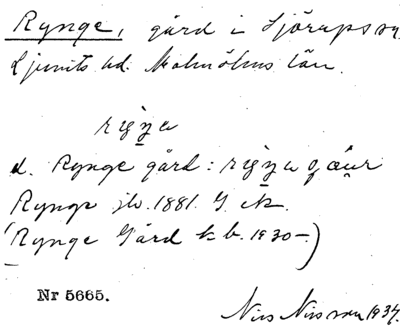 Rynge, gård i Sjörups sn,
Ljunits hd. Malmöhus län.
rìŋə
d. Rynge gård: rìŋə
Rynge jb. 1881. G ek.
(Rynge Gård kb. 1930-)
Nr 5665.
Nils Nilsson 1934.